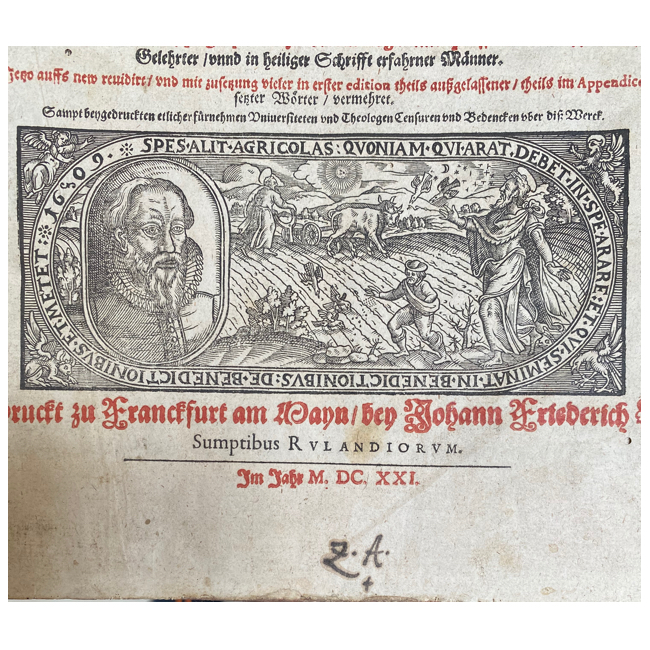 Gelehrter / vnnd in heiliger Schrifft erfahrner Männer.
auffs new reuidirt / vnd mit zusetzung vieler in erster edition theils außgelassener / theils im Appendice
setzter Wörter / vermehret.
Sampt beygedruckten etlicher fürnehmen Vniuersiteten vnd Theologen Censuren vnd Bedencken vber diß Werck.
SPES·ALIT·AGRICOLAS: QVONIAM·QVI·ARAT, DEBET·IN·SPE·ARARE: ET·QVI·SEMINAT·IN·BENEDICTIONIBVS: DE·BENEDICTIONIBVS·ET·METET 1609.
druckt zu Franckfurt am Mayn / bey Johann Friederich
Sumptibus RVLANDIORVM.
Im Jahr M. DC. XXI.
Z. A.